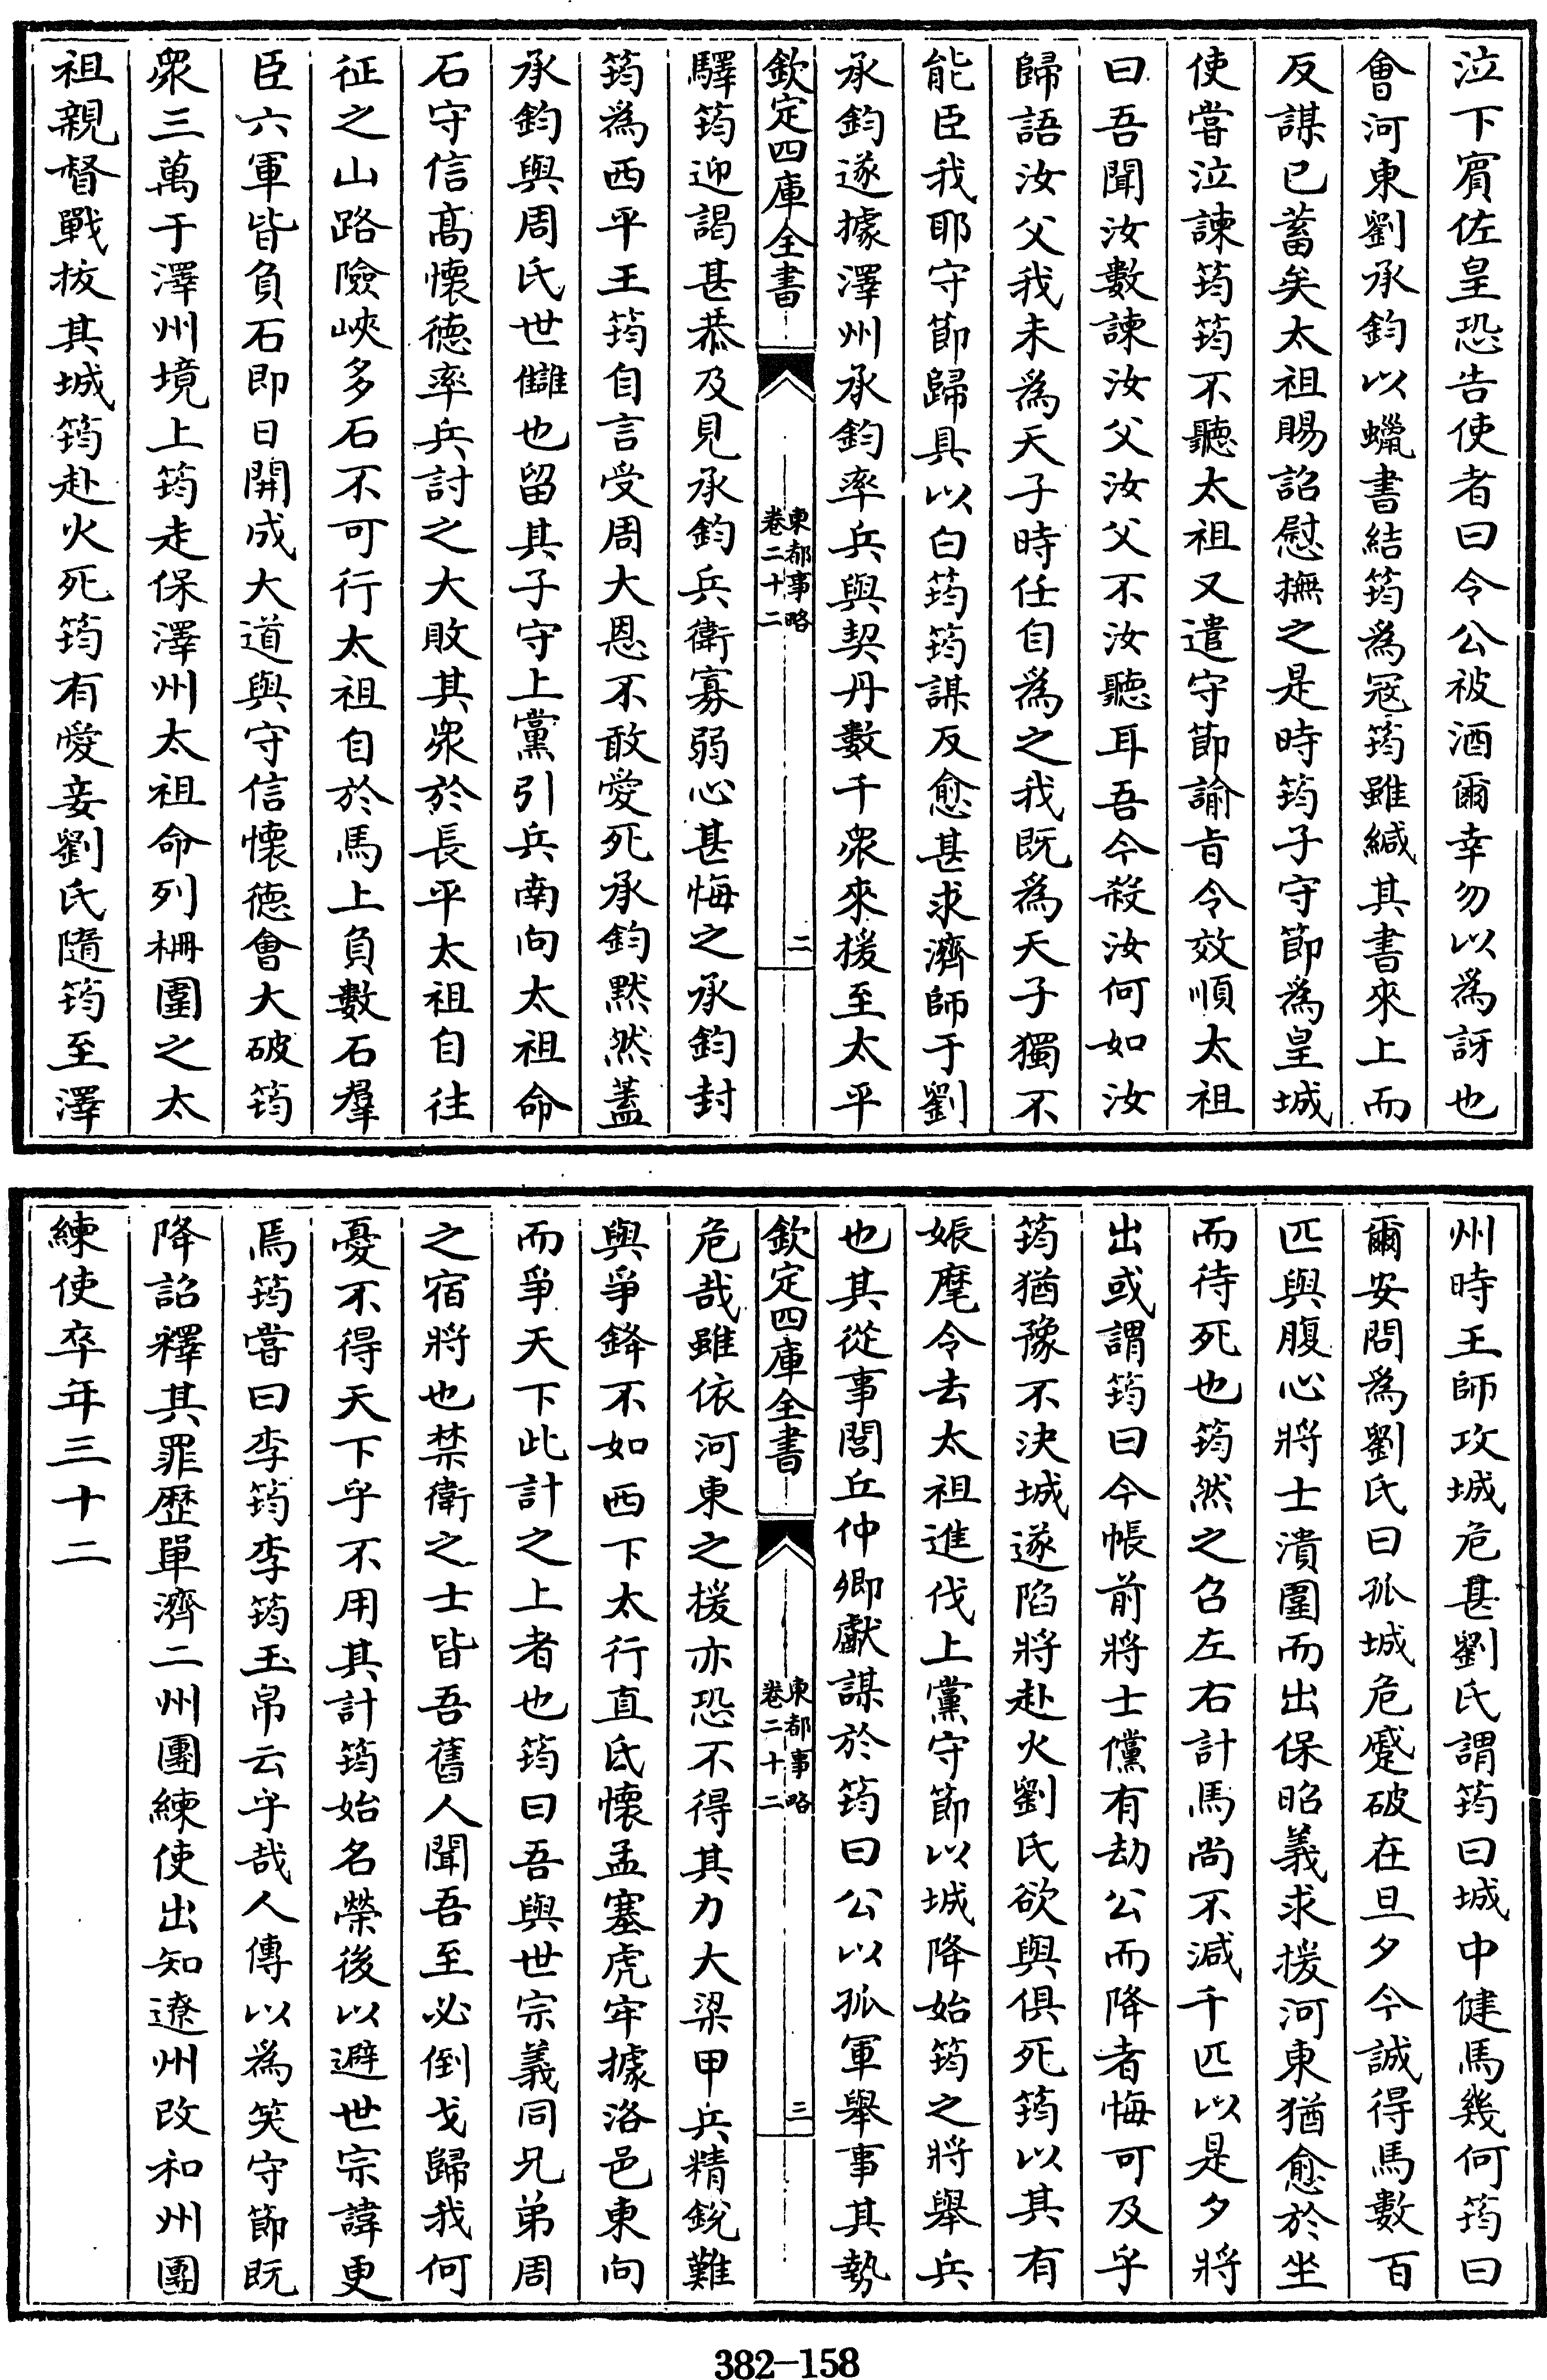 泣下賔佐皇恐告使者曰令公被酒爾幸勿以為訝也
會河東劉承鈞以蠟書結筠為冦筠雖緘其書來上而
反謀已蓄矣太祖賜詔慰撫之是時筠子守節為皇城
使嘗泣諫筠筠不聽太祖又遣守節諭旨令效順太祖
曰吾聞汝數諫汝父汝父不汝聽耳吾今殺汝何如汝
歸語汝父我未為天子時任自為之我既為天子獨不
能臣我耶守節歸具以白筠筠謀反愈甚求濟師于劉
承鈞遂據澤州承鈞率兵與契丹數千衆來援至太平
欽定四庫全書
東都事略
卷二十二
二
驛筠迎謁甚恭及見承鈞兵衛寡弱心甚悔之承鈞封
筠為西平王筠自言受周大恩不敢愛死承鈞黙然蓋
承鈞與周氏世讎也留其子守上黨引兵南向太祖命
石守信髙懷德率兵討之大敗其衆於長平太祖自往
征之山路險峽多石不可行太祖自於馬上負數石羣
臣六軍皆負石即日開成大道與守信懷德會大破筠
衆三萬于澤州境上筠走保澤州太祖命列柵圍之太
祖親督戰拔其城筠赴火死筠有愛妾劉氏隨筠至澤
州時王師攻城危甚劉氏謂筠曰城中健馬幾何筠曰
爾安問為劉氏曰孤城危蹙破在旦夕今誠得馬數百
匹與腹心將士潰圍而出保昭義求援河東猶愈於坐
而待死也筠然之召左右計馬尚不減千匹以是夕將
出或謂筠曰今帳前將士儻有劫公而降者悔可及乎
筠猶豫不決城遂陷將赴火劉氏欲與俱死筠以其有
娠麾令去太祖進伐上黨守節以城降始筠之將舉兵
也其從事閭丘仲卿獻謀於筠曰公以孤軍舉事其勢
欽定四庫全書
東都事略
卷二十二
三
危哉雖依河東之援亦恐不得其力大梁甲兵精鋭難
與爭鋒不如西下太行直氐懷孟塞虎牢據洛邑東向
而爭天下此計之上者也筠曰吾與世宗義同兄弟周
之宿將也禁衛之士皆吾舊人聞吾至必倒戈歸我何
憂不得天下乎不用其計筠始名榮後以避世宗諱更
焉筠嘗曰李筠李筠玉帛云乎哉人傳以為笑守節既
降詔釋其罪歴單濟二州團練使出知遼州改和州團
練使卒年三十二
382-158